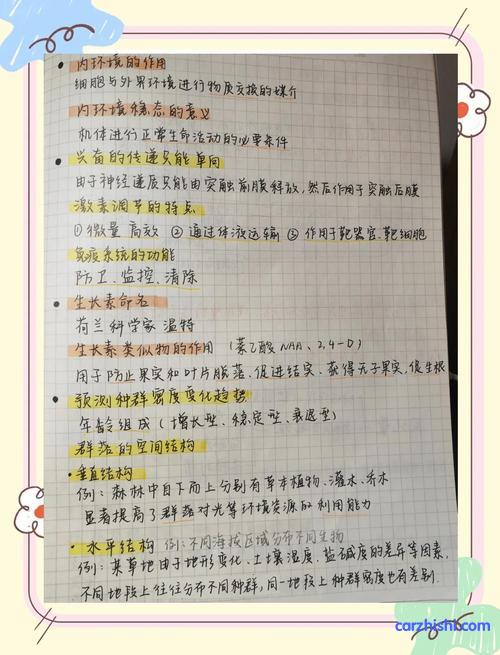 内环境的作用
细胞与外界环境进行物质交换的媒介
内环境稳态的意义
机体进行正常生命活动的必要条件
兴奋的传递只能单向
由于神经递质只能由突触前膜释放，然后作用于突触后膜
激素调节的特点
①微量 高效 ②通过体液运输 ③作用于靶器官、靶细胞
免疫系统的功能
防卫、监控、清除
生长素命名
荷兰科学家 温特
生长素类似物的作用（萘乙酸 NAA、2,4-D）
用于防止果实和叶片脱落、促进结实、获得无子果实、促生根
预测种群密度变化趋势
年龄组成（增长型、稳定型、衰退型）
群落的空间结构
垂直结构
例：森林中自下而上分别有草本植物、灌木、乔木
显著提高了群落对光等环境资源的利用能力
水平结构 例：不同海拔区域分布不同生物
例：某草地由于地形变化、土壤湿度、盐碱度的差异等因素，
不同地段上往往分布不同种群，同一地段上种群密度也有差别.
carzhishi.com